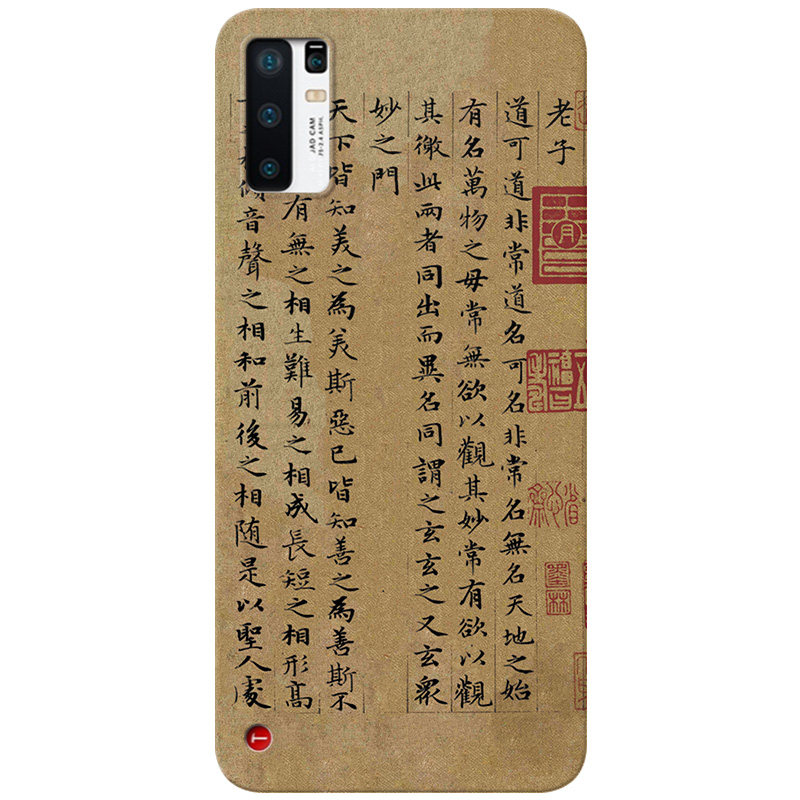 老子
道可道非常道名可名非常名無名天地之始
有名萬物之母常無欲以觀其妙常有欲以觀
其徼此兩者同出而異名同謂之玄玄之又玄眾
妙之門
天下皆知美之為美斯惡已皆知善之為善斯不
有無之相生難易之相成長短之相形高
傾音聲之相和前後之相随是以聖人處
墨林
JAD CAM
T